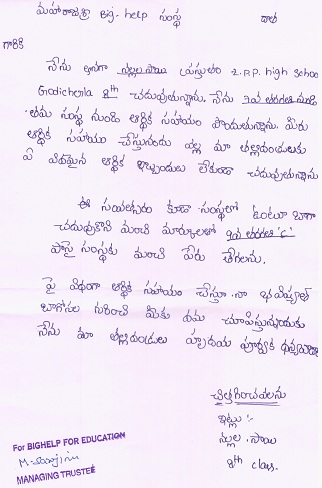 మహారాజశ్రీ Big-help సంస్థ
గారికి
నేను అనగా నల్లల సాయి ప్రస్తుతం Z.R.P. high school
Godicherla 8th చదువుతున్నాను. నేను 7వ తరగతి నుండి
తమ సంస్థ నుండి ఆర్థిక సహాయం పొందుతున్నాను. మీరు
ఆర్థిక సహాయం చేస్తునందు వల్ల మా తల్లిదండ్రులకు
ఏ విధమైన ఆర్థిక ఇబ్బందులు లేకుండా చదువుతున్నాను
ఈ సంవత్సరం కూడా సంస్థలో ఉంటూ బాగా
చదువుకొని మంచి మార్కులతో 9వ తరగతి
పాసై సంస్థకు మంచి పేరు తేగలను.
పై విధంగా ఆర్థిక సహాయం చేస్తూ నా భవిష్యత్
బాగోగుల గురించి మీకు దయ చూపిస్తున్నందుకు
నేను మా తల్లిదండ్రులు హృదయ పూర్వక ధన్యవాదా
చిత్తగించవలెను
ఇట్లు :-
నల్లల. సాయి
8th class.
For BIGHELP FOR EDUCATION
MANAGING TRUSTEE